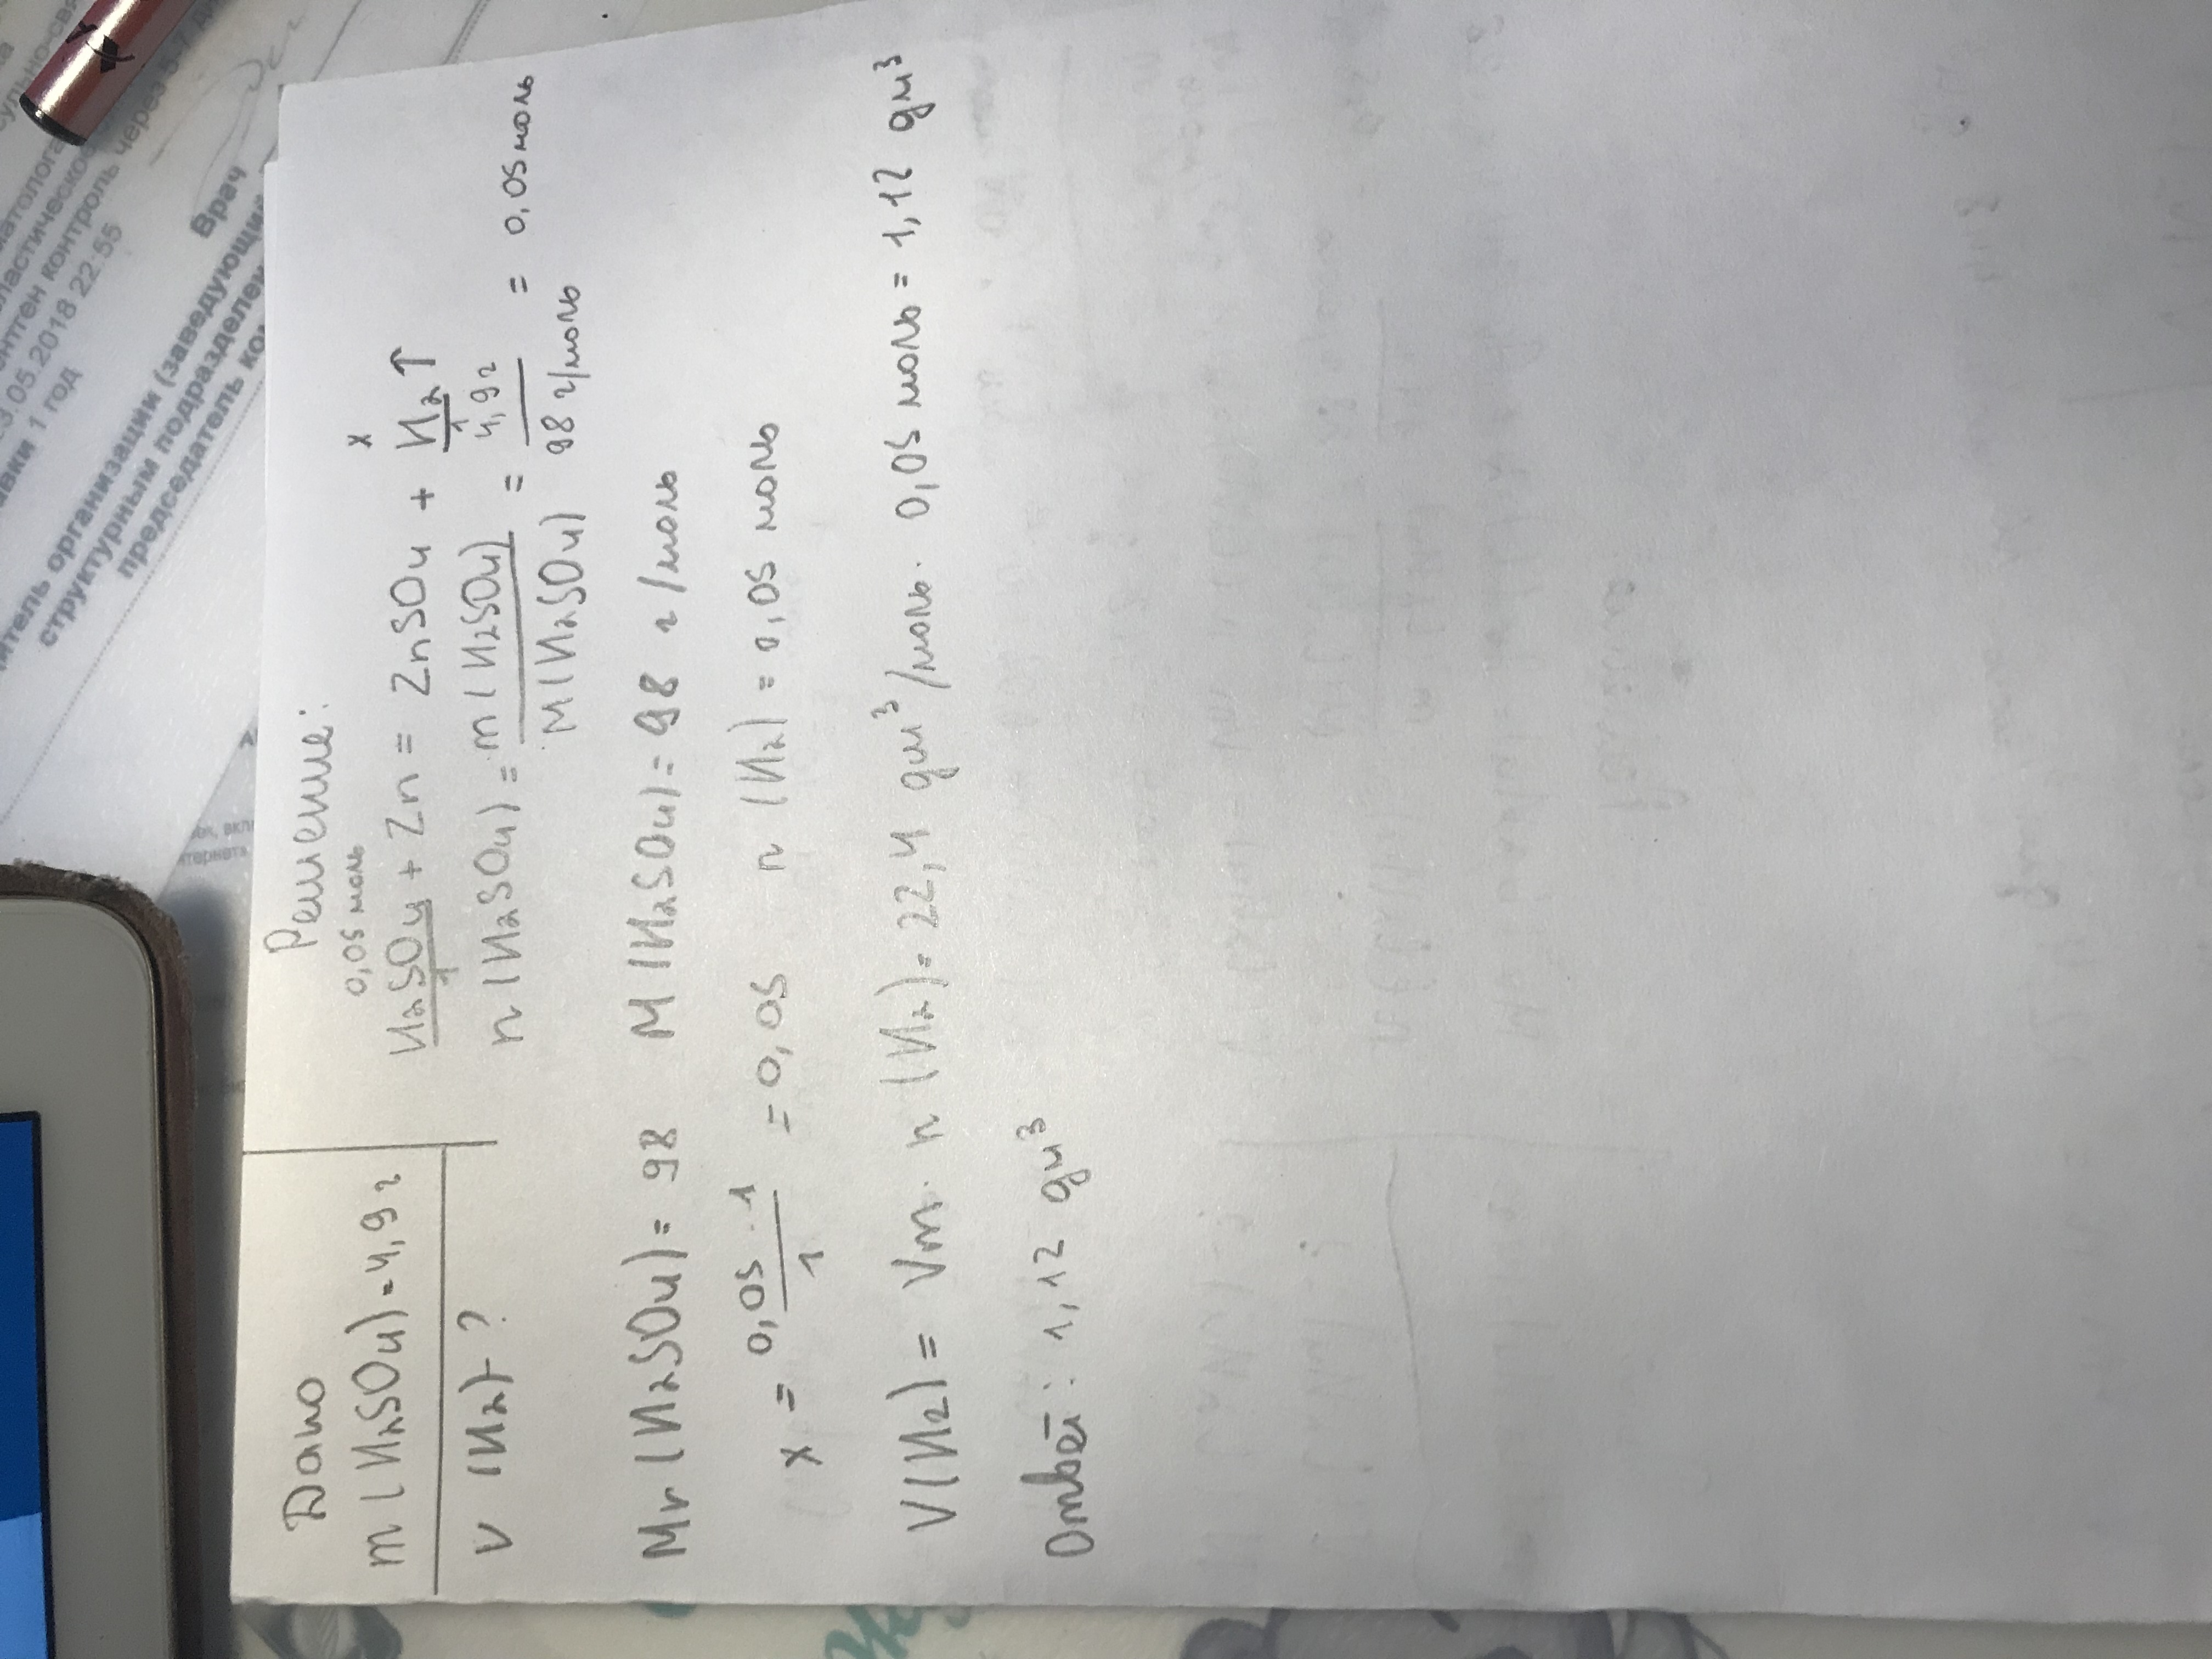 Дано
m (H₂SO₄) = 4,9 г
V (H₂) - ?
Решение:
0,05 моль x
H₂SO₄ + Zn = ZnSO₄ + H₂↑
1 1
n (H₂SO₄) = m (H₂SO₄) / M (H₂SO₄) = 4,9 г / 98 г/моль = 0,05 моль
Mr (H₂SO₄) = 98 M (H₂SO₄) = 98 г/моль
x = 0,05 · 1 / 1 = 0,05 n (H₂) = 0,05 моль
V(H₂) = Vm · n (H₂) = 22,4 дм³/моль · 0,05 моль = 1,12 дм³
Ответ: 1,12 дм³
контроль через 5-7
23.05.2018 22:55
1 год
Врач
организации (заведующий
структурным подразделен
председатель